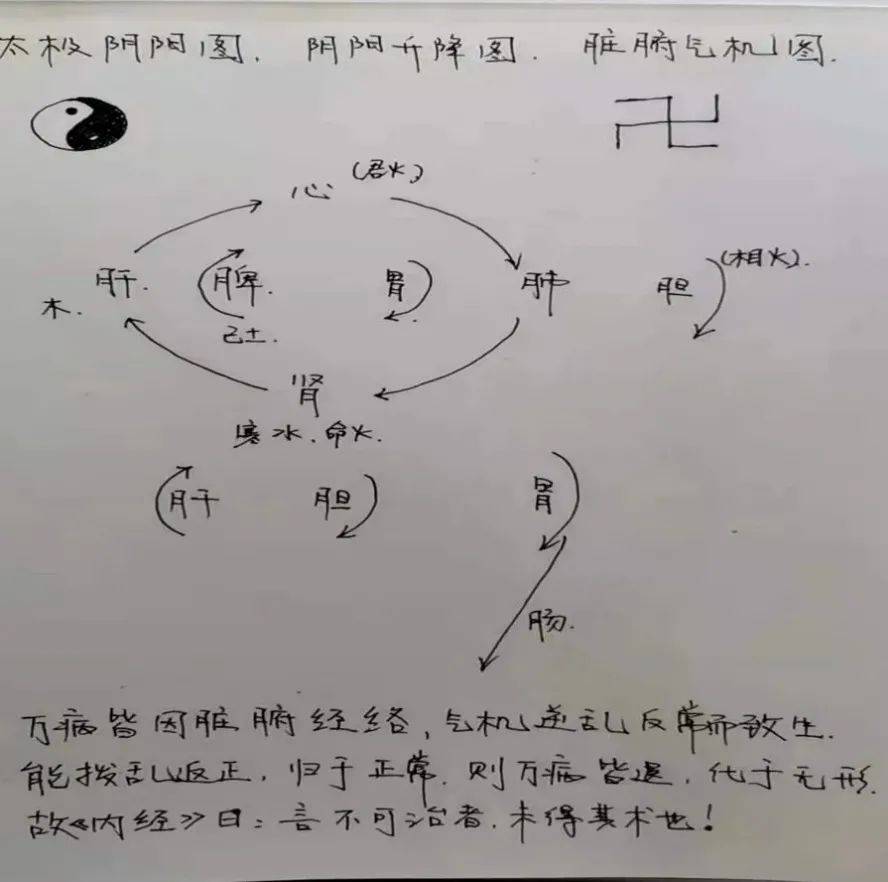 太极阴阳图. 阴阳升降图. 脏腑气机图.
卍
心 (君火)
肝. 脾. 胃 肺 胆 (相火).
木. 己土.
肾
寒水. 命火.
肝 胆 胃
肠.
万病皆因脏腑经络, 气机逆乱反常而致生.
能拨乱返正, 归于正常. 则万病皆退, 化于无形.
故《内经》曰: 言不可治者. 未得其术也!